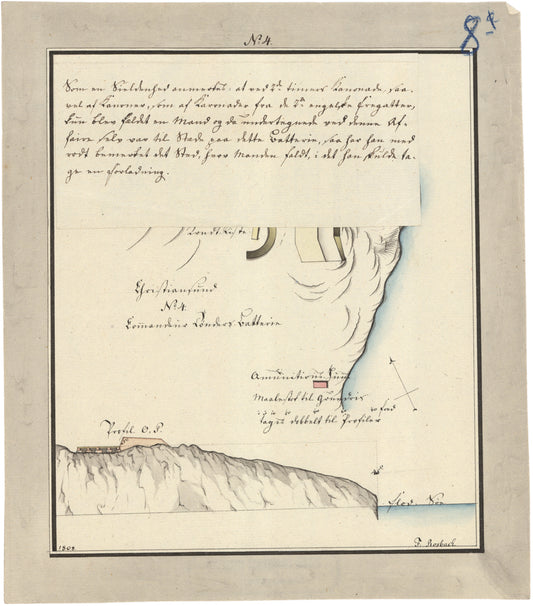 No. 4.
8
Som en Sieldenhed anmerkes: at ved 2de timers Kanonade, saa
vel af Kanoner, som af Karonader fra de 2de engelske Fregatter,
kun blev faldet en Mand og da undertegnede ved denne Af-
faire selv var til Stæde paa dette Batterie, saa har han med
rødt bemerket det Sted, hvor Manden faldt, i det han skulde ta-
ge en Forladning.
Christiansund
No. 4.
Comandeur Lønders Batterie
Amunitions
Maalestok til Grundris
tages dobbelt til Profiler
Profil O. P.
Flod Søe
1808
F. Rosbach